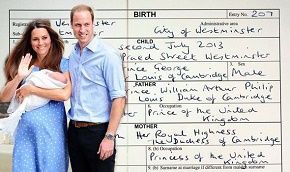 BIRTH Entry No. 207
Registration Administrative area
Westminster City of Westminster
CHILD
second July 2013
Praed Street Westminster
Prince George
Louis of Cambridge Male
FATHER
Prince William Arthur Philip
Louis Duke of Cambridge
6. Occupation
Prince of the United
Kingdom
MOTHER
Her Royal Highness
The Duchess of Cambridge
8. (b) Occupation
Princess of the United
9. (b) Surname at marriage if different from maiden surname